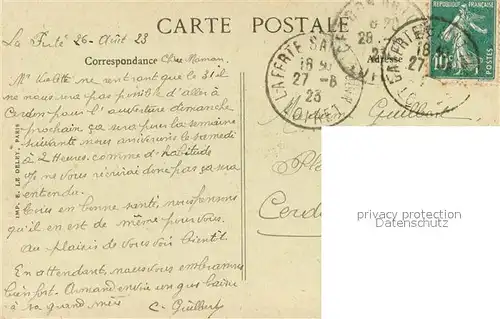 CARTE POSTALE
La Ferté 26 - Août 23
Correspondance
Chère Maman
Adresse
Mr Violette ne rentrant que le 31 il
ne nous sera pas possible d'aller à
Cerdon pour l'ouverture dimanche
prochain ça sera pour la semaine
suivante nous arriverons le samedi
à 2 Heures comme d'habitude
Je ne vous récrirai donc pas ça sera
entendu.
Tous en bonne santé, nous pensons
qu'il en est de même pour vous.
Au plaisir de vous voir bientôt.
En attendant, nous vous embrassons
bien fort. Armand envoie un gros baiser
à sa grand mère
C. Guillert
IMP. E. LE DELEY, PARIS
LA FERTE
27-8
23
LOIRET
REPUBLIQUE FRANCAISE
10c
Madame Guillert
Cerdon
privacy protection
privacy protection